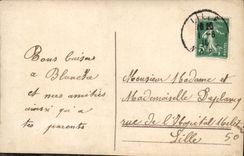 LILLE
Bons baisers
à Blanche
et mes amitiés
ainsi qu'à
tes parents
Monsieur Madame et
Mademoiselle Deplancq
rue de l'Hôpital Milit
Lille 50